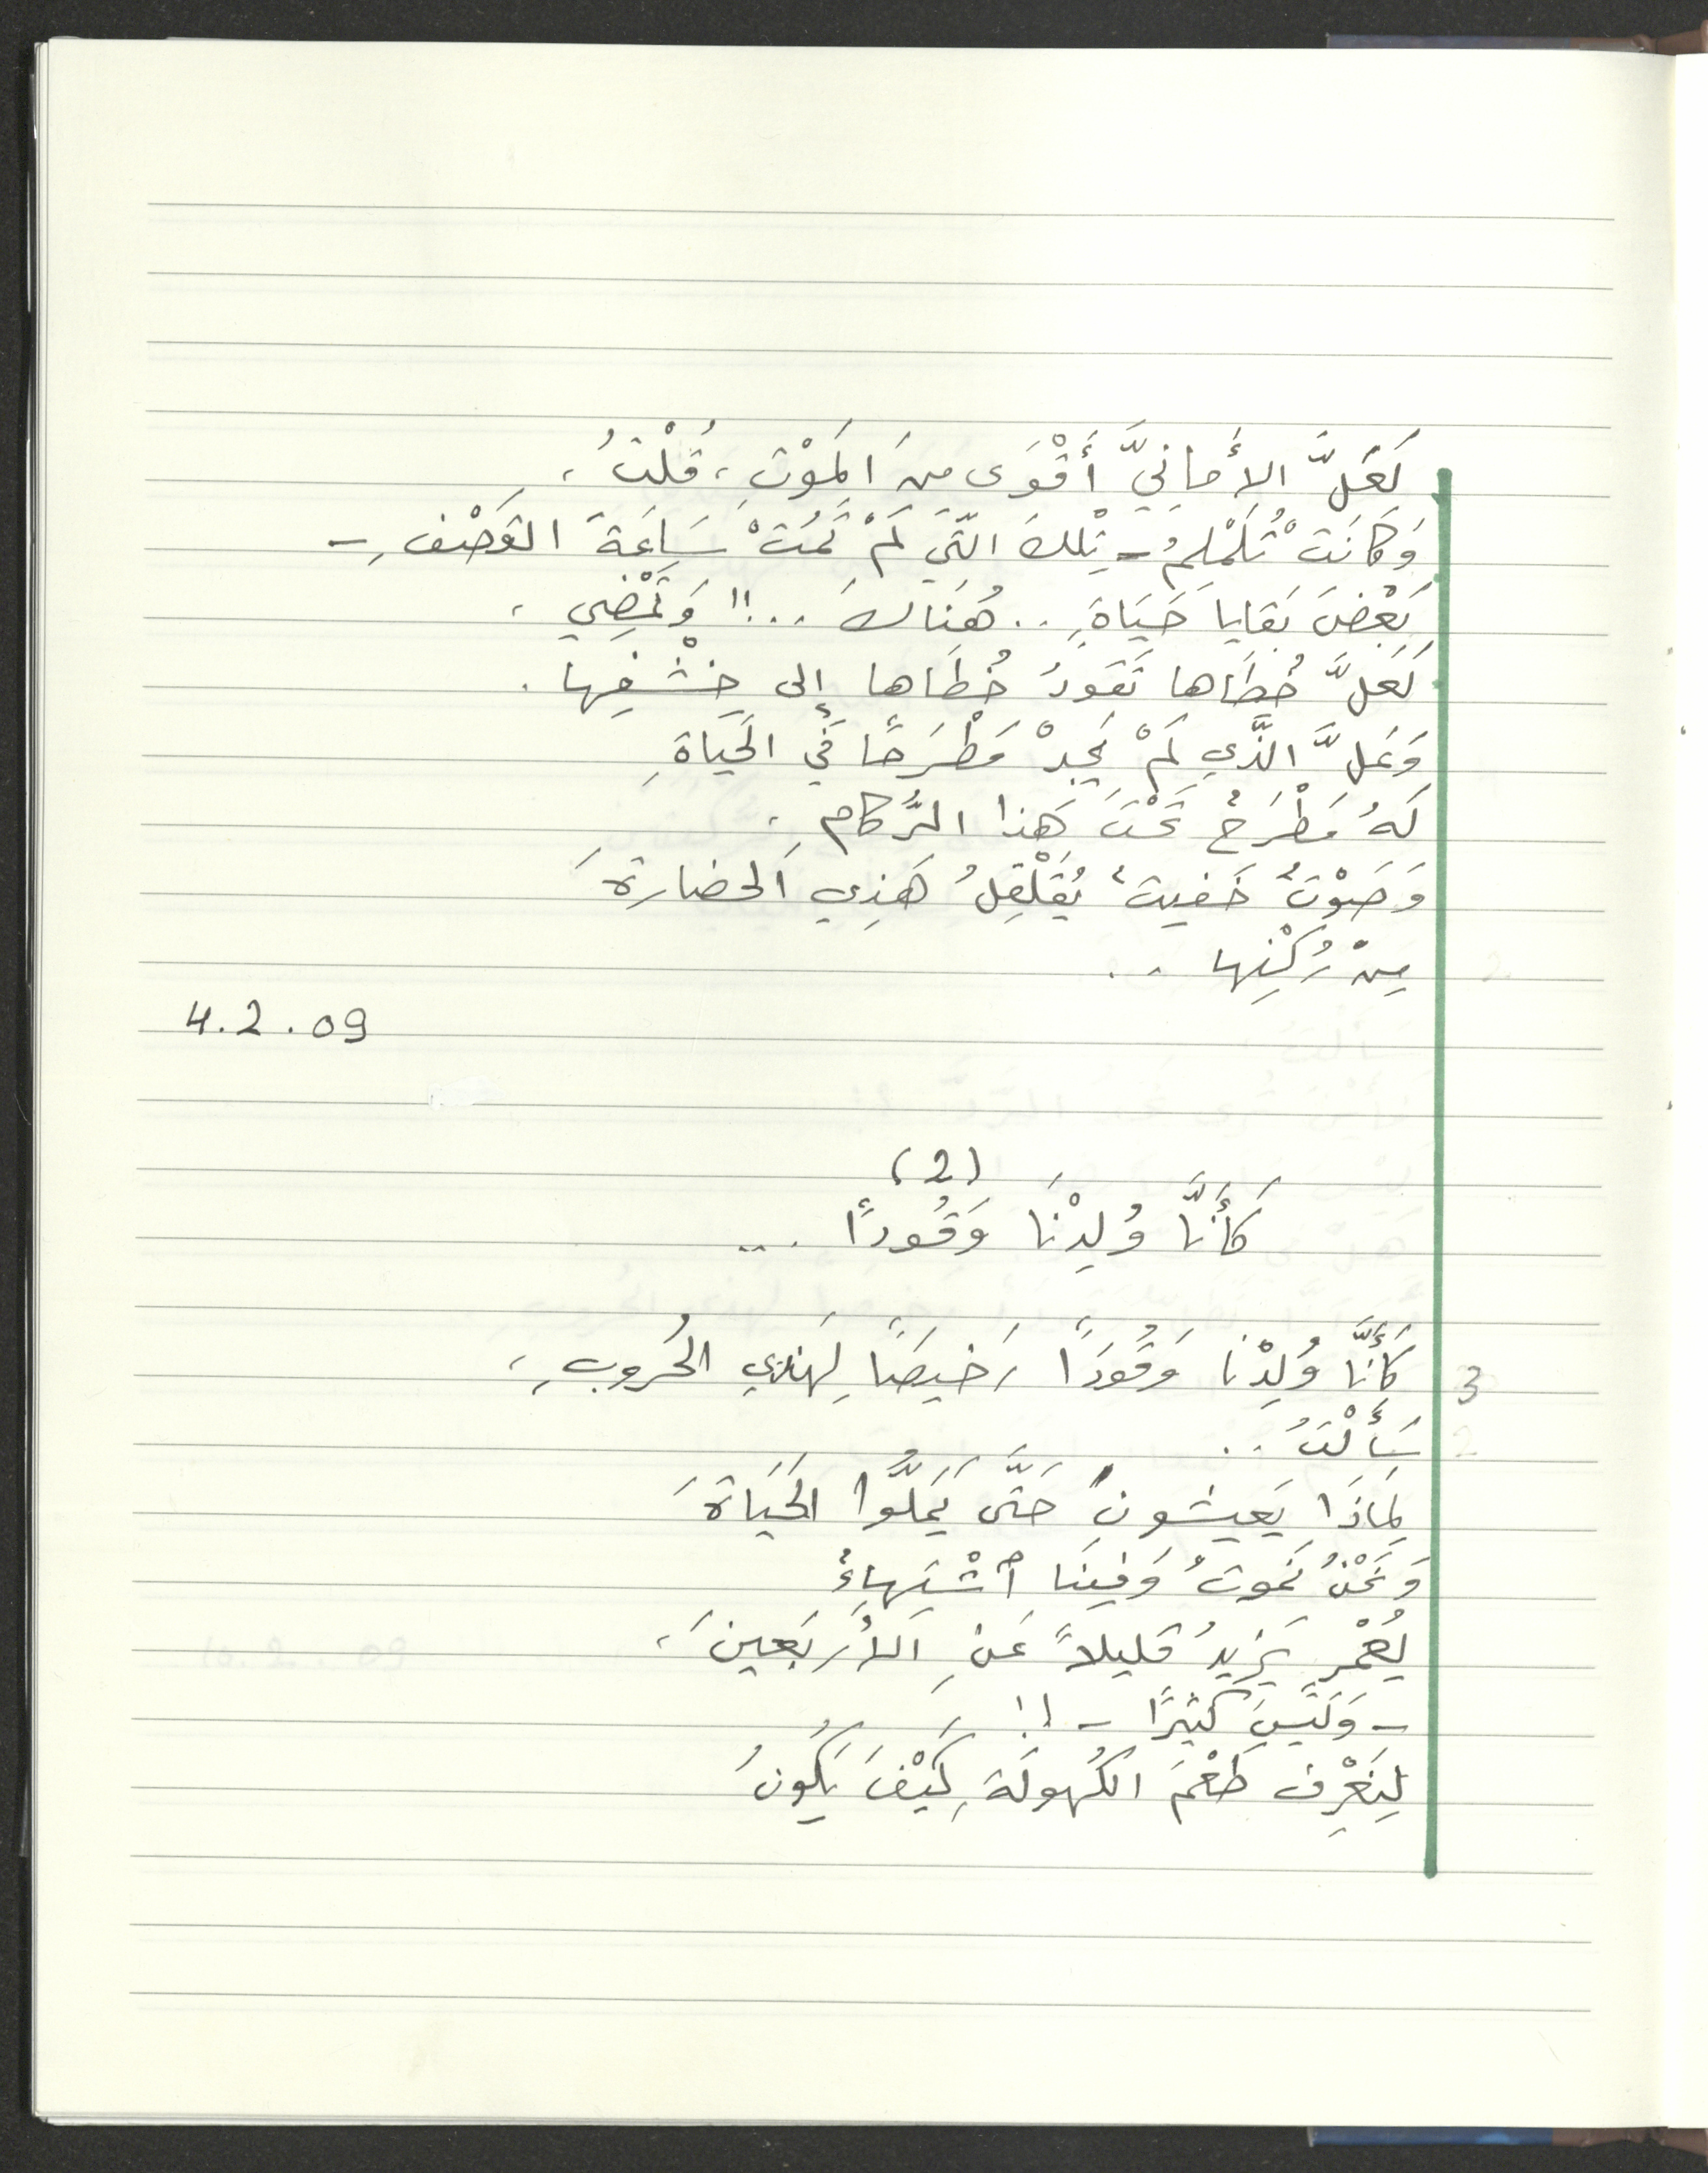 لَعَلَّ الأَمانِيَّ أَقْوَى مِنَ المَوْتِ، قُلْتُ،
وَكَانَتْ تُلَمْلِمُ - تِلكَ الَّتِي لَمْ تَمُتْ سَاعَةَ القَصْفِ -
بَعْضَ بَقايا حَيَاةٍ.. هُنَاكَ ..!! وَتَمْضِي،
لَعَلَّ خُطَاها تَقودُ خُطَاها إِلى خِشْفِها.
وَعَلَّ الَّذِي لَمْ يَجِدْ مَطْرَحًا فِي الحَياةِ
لَهُ مَطْرَحٌ تَحْتَ هَذا الرُّكامِ،
وَصَوْتٌ خَفيتٌ يُقَلْقِلُ هَذِي الحَضارَةَ
مِنْ رُكْنِها ..
4.2.09
(2)
كَأَنَّا وُلِدْنَا وَقُودًا ...
كَأَنَّا وُلِدْنا وَقُودًا رَخيصًا لِهَذي الحُروبِ،
3
سَأَلْتُ ..
لِمَاذَا يَعيشونَ حَتَّى يَمَلُّوا الحَيَاةَ
وَنَحْنُ نَموتُ وَفينَا ٱشْتِهاءٌ
لِعُمْرٍ يَزيدُ قَليلاً عَنِ الأَرْبَعينَ،
- وَلَيْسَ كَثيرًا - !!
لِنَعْرِفَ طَعْمَ الكُهولَةِ كَيْفَ يَكُونُ